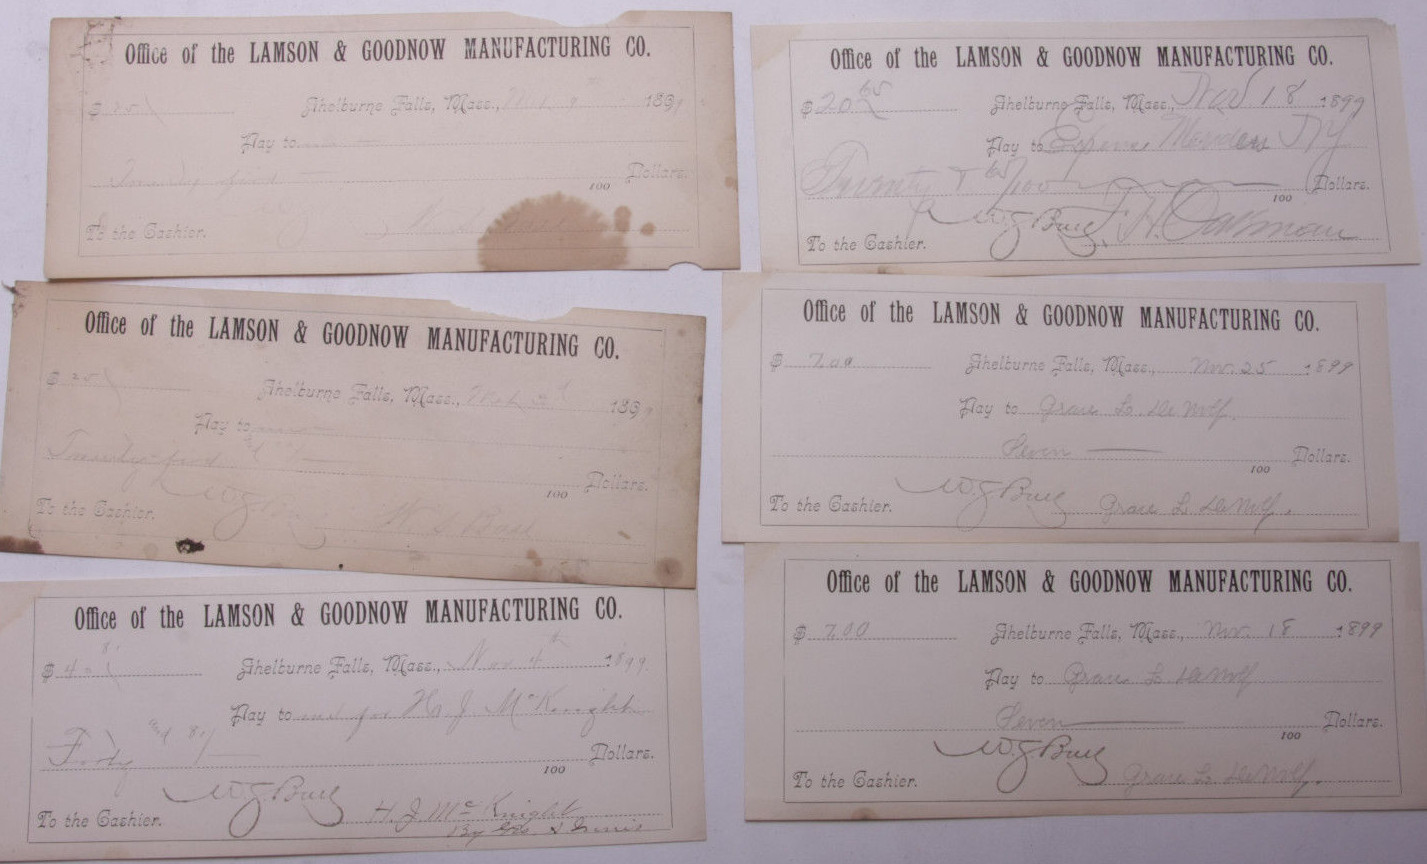 Office of the LAMSON & GOODNOW MANUFACTURING CO.
$ 25 Shelburne Falls, Mass., 189
Pay to
100 Dollars.
To the Cashier.
Office of the LAMSON & GOODNOW MANUFACTURING CO.
$ 20 65 Shelburne Falls, Mass., Nov 18 1899
Pay to
Twenty & 65/100 100 Dollars.
W.G. Buell F. H. Oakman
To the Cashier.
Office of the LAMSON & GOODNOW MANUFACTURING CO.
$ 25 Shelburne Falls, Mass., 189
Pay to
100 Dollars.
To the Cashier.
Office of the LAMSON & GOODNOW MANUFACTURING CO.
$ 7.00 Shelburne Falls, Mass., Nov. 25 1899
Pay to Grace L. DeWolf.
Seven 100 Dollars.
To the Cashier. W.G. Buell Grace L. DeWolf.
Office of the LAMSON & GOODNOW MANUFACTURING CO.
$ 40 81 Shelburne Falls, Mass., Nov 4th 1899
Pay to H. J. McKnight
Forty and 81/ 100 Dollars.
To the Cashier. W.G. Buell H. J. McKnight
By Geo
Office of the LAMSON & GOODNOW MANUFACTURING CO.
$ 7.00 Shelburne Falls, Mass., Nov. 18 1899
Pay to Grace L. DeWolf
Seven 100 Dollars.
To the Cashier. W.G. Buell Grace L. DeWolf.